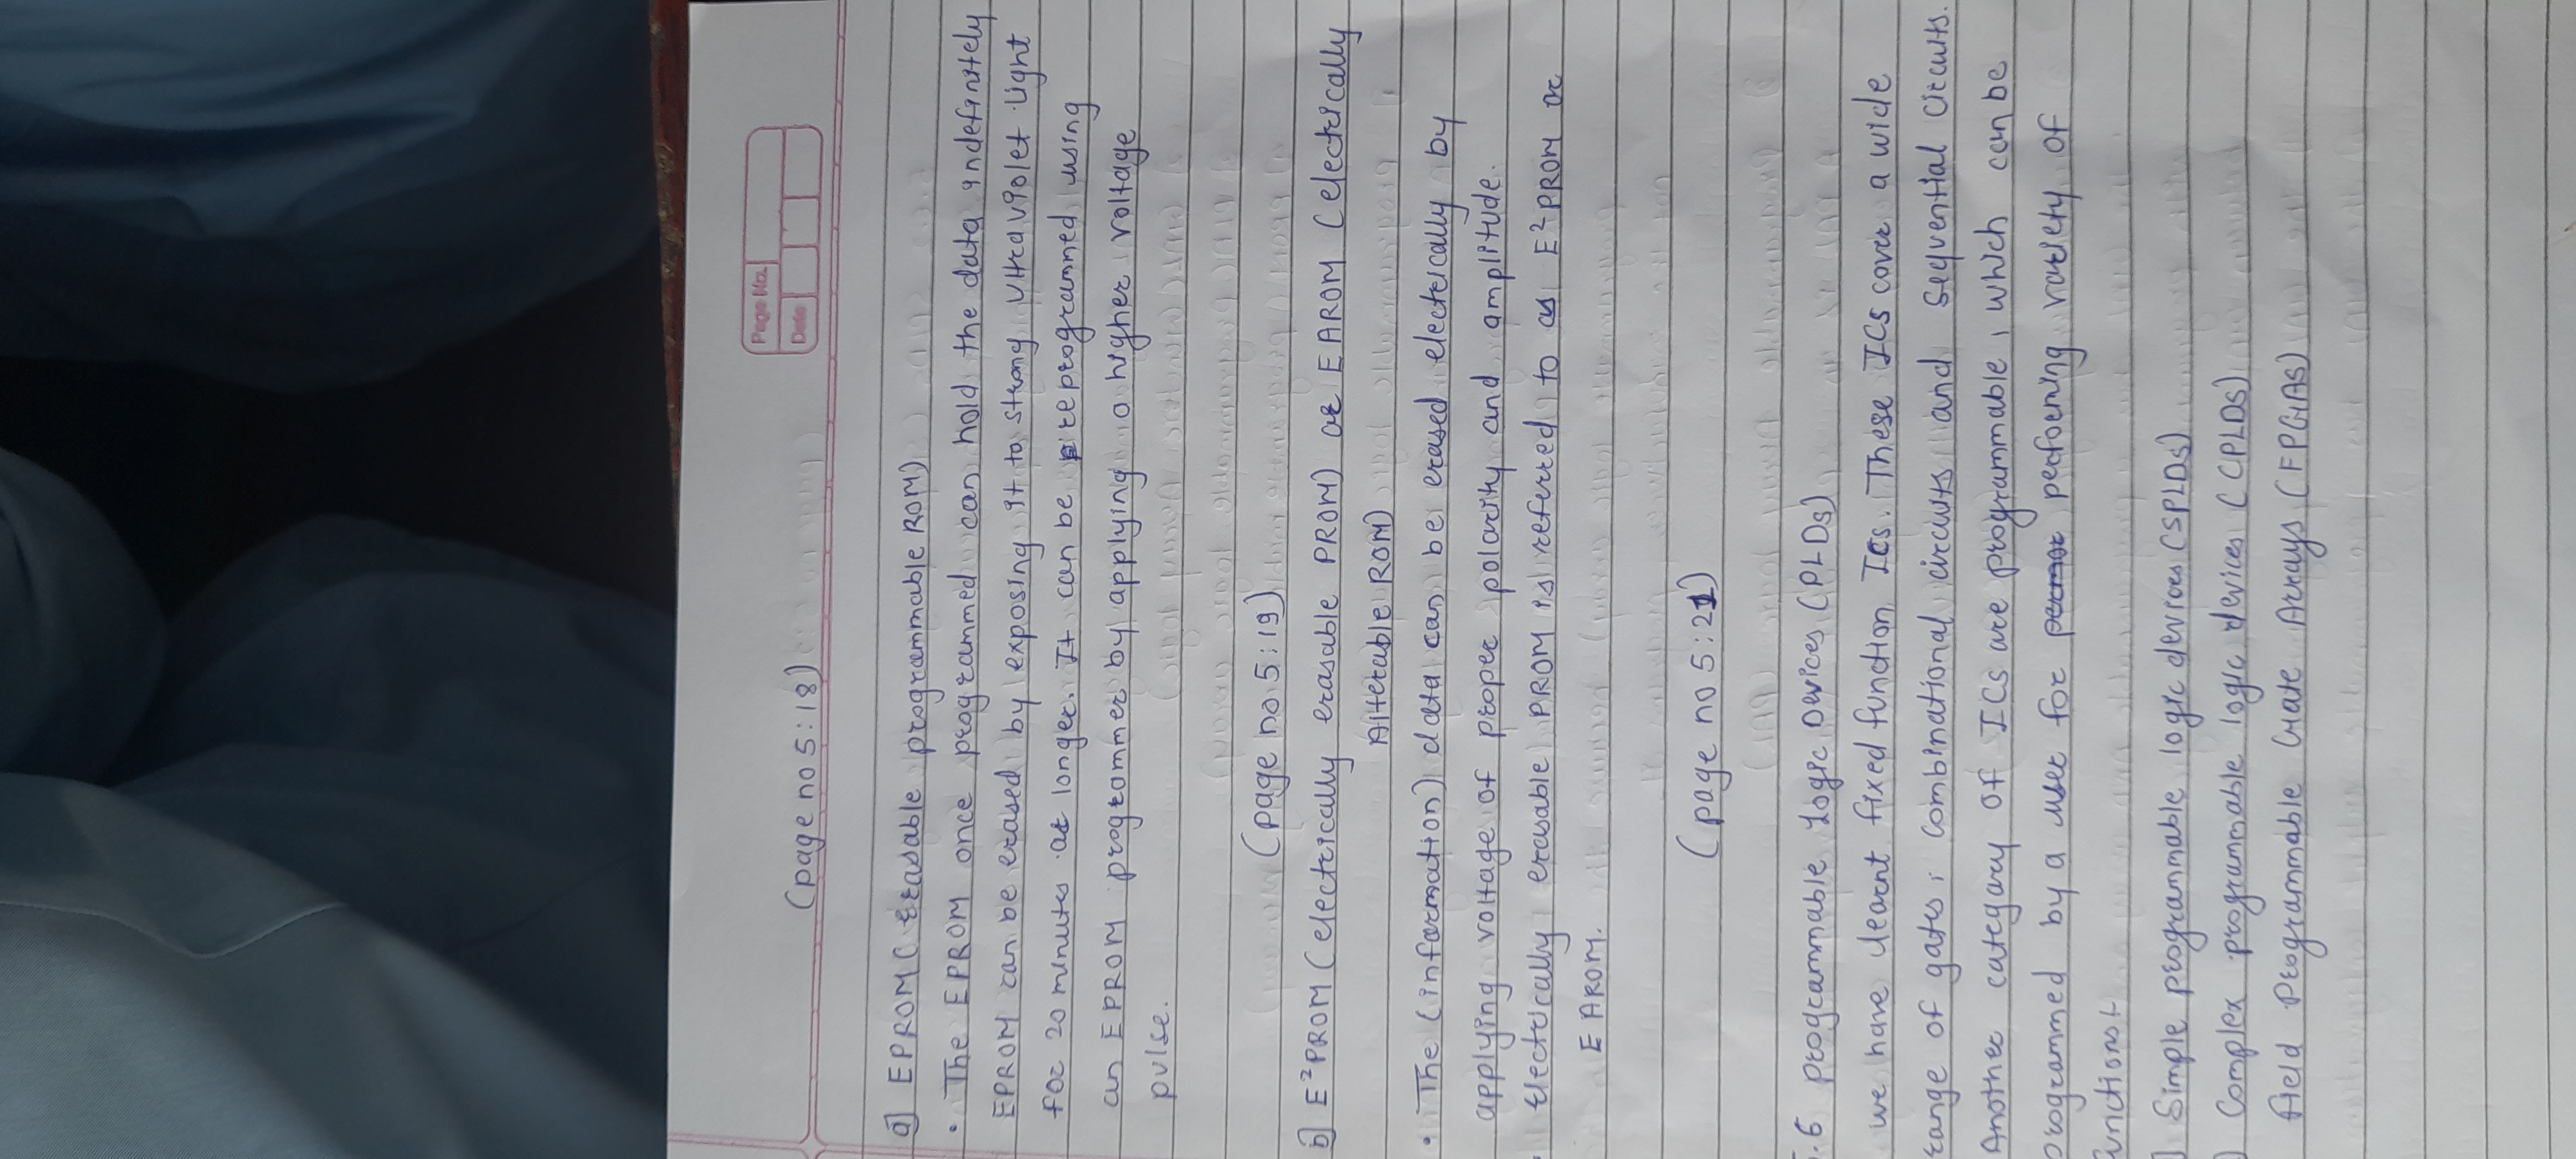 Page No.
Date
(page no 5:18)
a] EPROM ( Erasable programmable ROM)
• The EPROM once programmed can hold the data indefinitely
EPROM can be erased by exposing it to strong Ultraviolet light
for 20 minutes or longer. It can be reprogrammed using
an EPROM programmer by applying a higher voltage
pulse.
(page no 5:19)
b] E²PROM (electrically erasable PROM) or EAROM (electrically
Alterable ROM)
• The (information) data can be erased electrically by
applying voltage of proper polarity and amplitude.
• Electrically erasable PROM is referred to as E²PROM or
EAROM.
(page no 5:21)
.6 programmable Logic Devices (PLDs)
we have learnt fixed function ICs. These ICs cover a wide
range of gates, combinational circuits and sequential circuits.
Another category of ICs are programmable, which can be
programmed by a user for performing variety of
functions:-
] Simple programmable logic devices (SPLDs)
) Complex programmable logic devices (CPLDs)
field Programmable Gate Arrays (FPGAs)